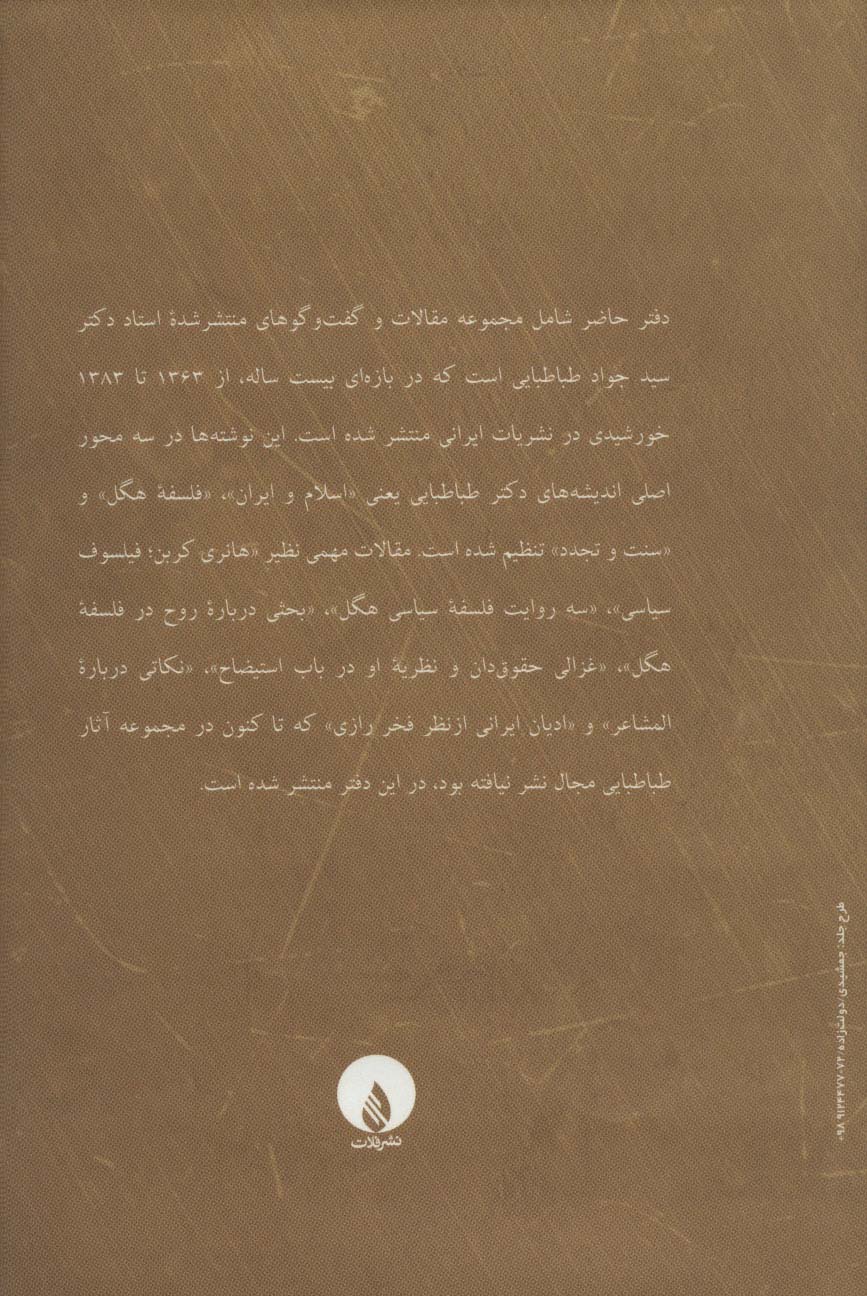 دفتر حاضر شامل مجموعه مقالات و گفت‌وگوهای منتشرشدهٔ استاد دکتر
سید جواد طباطبایی است که در بازه‌ای بیست ساله، از ۱۳۶۳ تا ۱۳۸۳
خورشیدی در نشریات ایرانی منتشر شده است. این نوشته‌ها در سه محور
اصلی اندیشه‌های دکتر طباطبایی یعنی «اسلام و ایران»، «فلسفهٔ هگل» و
«سنت و تجدد» تنظیم شده است. مقالات مهمی نظیر «هانری کربن؛ فیلسوف
سیاسی»، «سه روایت فلسفهٔ سیاسی هگل»، «بحثی دربارهٔ روح در فلسفهٔ
هگل»، «غزالی حقوق‌دان و نظریهٔ او در باب استیضاح»، «نکاتی دربارهٔ
المشاعر» و «ادیان ایرانی ازنظر فخر رازی» که تا کنون در مجموعه آثار
طباطبایی مجال نشر نیافته بود، در این دفتر منتشر شده است.
طرح جلد: جمشیدی/دولت‌زاده/
نشر فلات